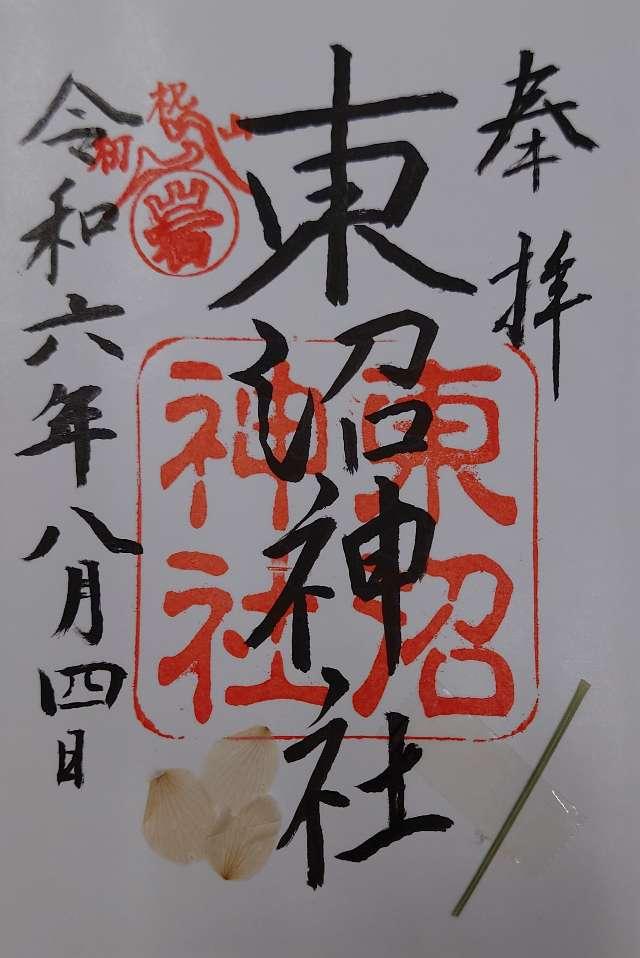 奉拝
東沼神社
東沼
神社
岩
令和六年八月四日